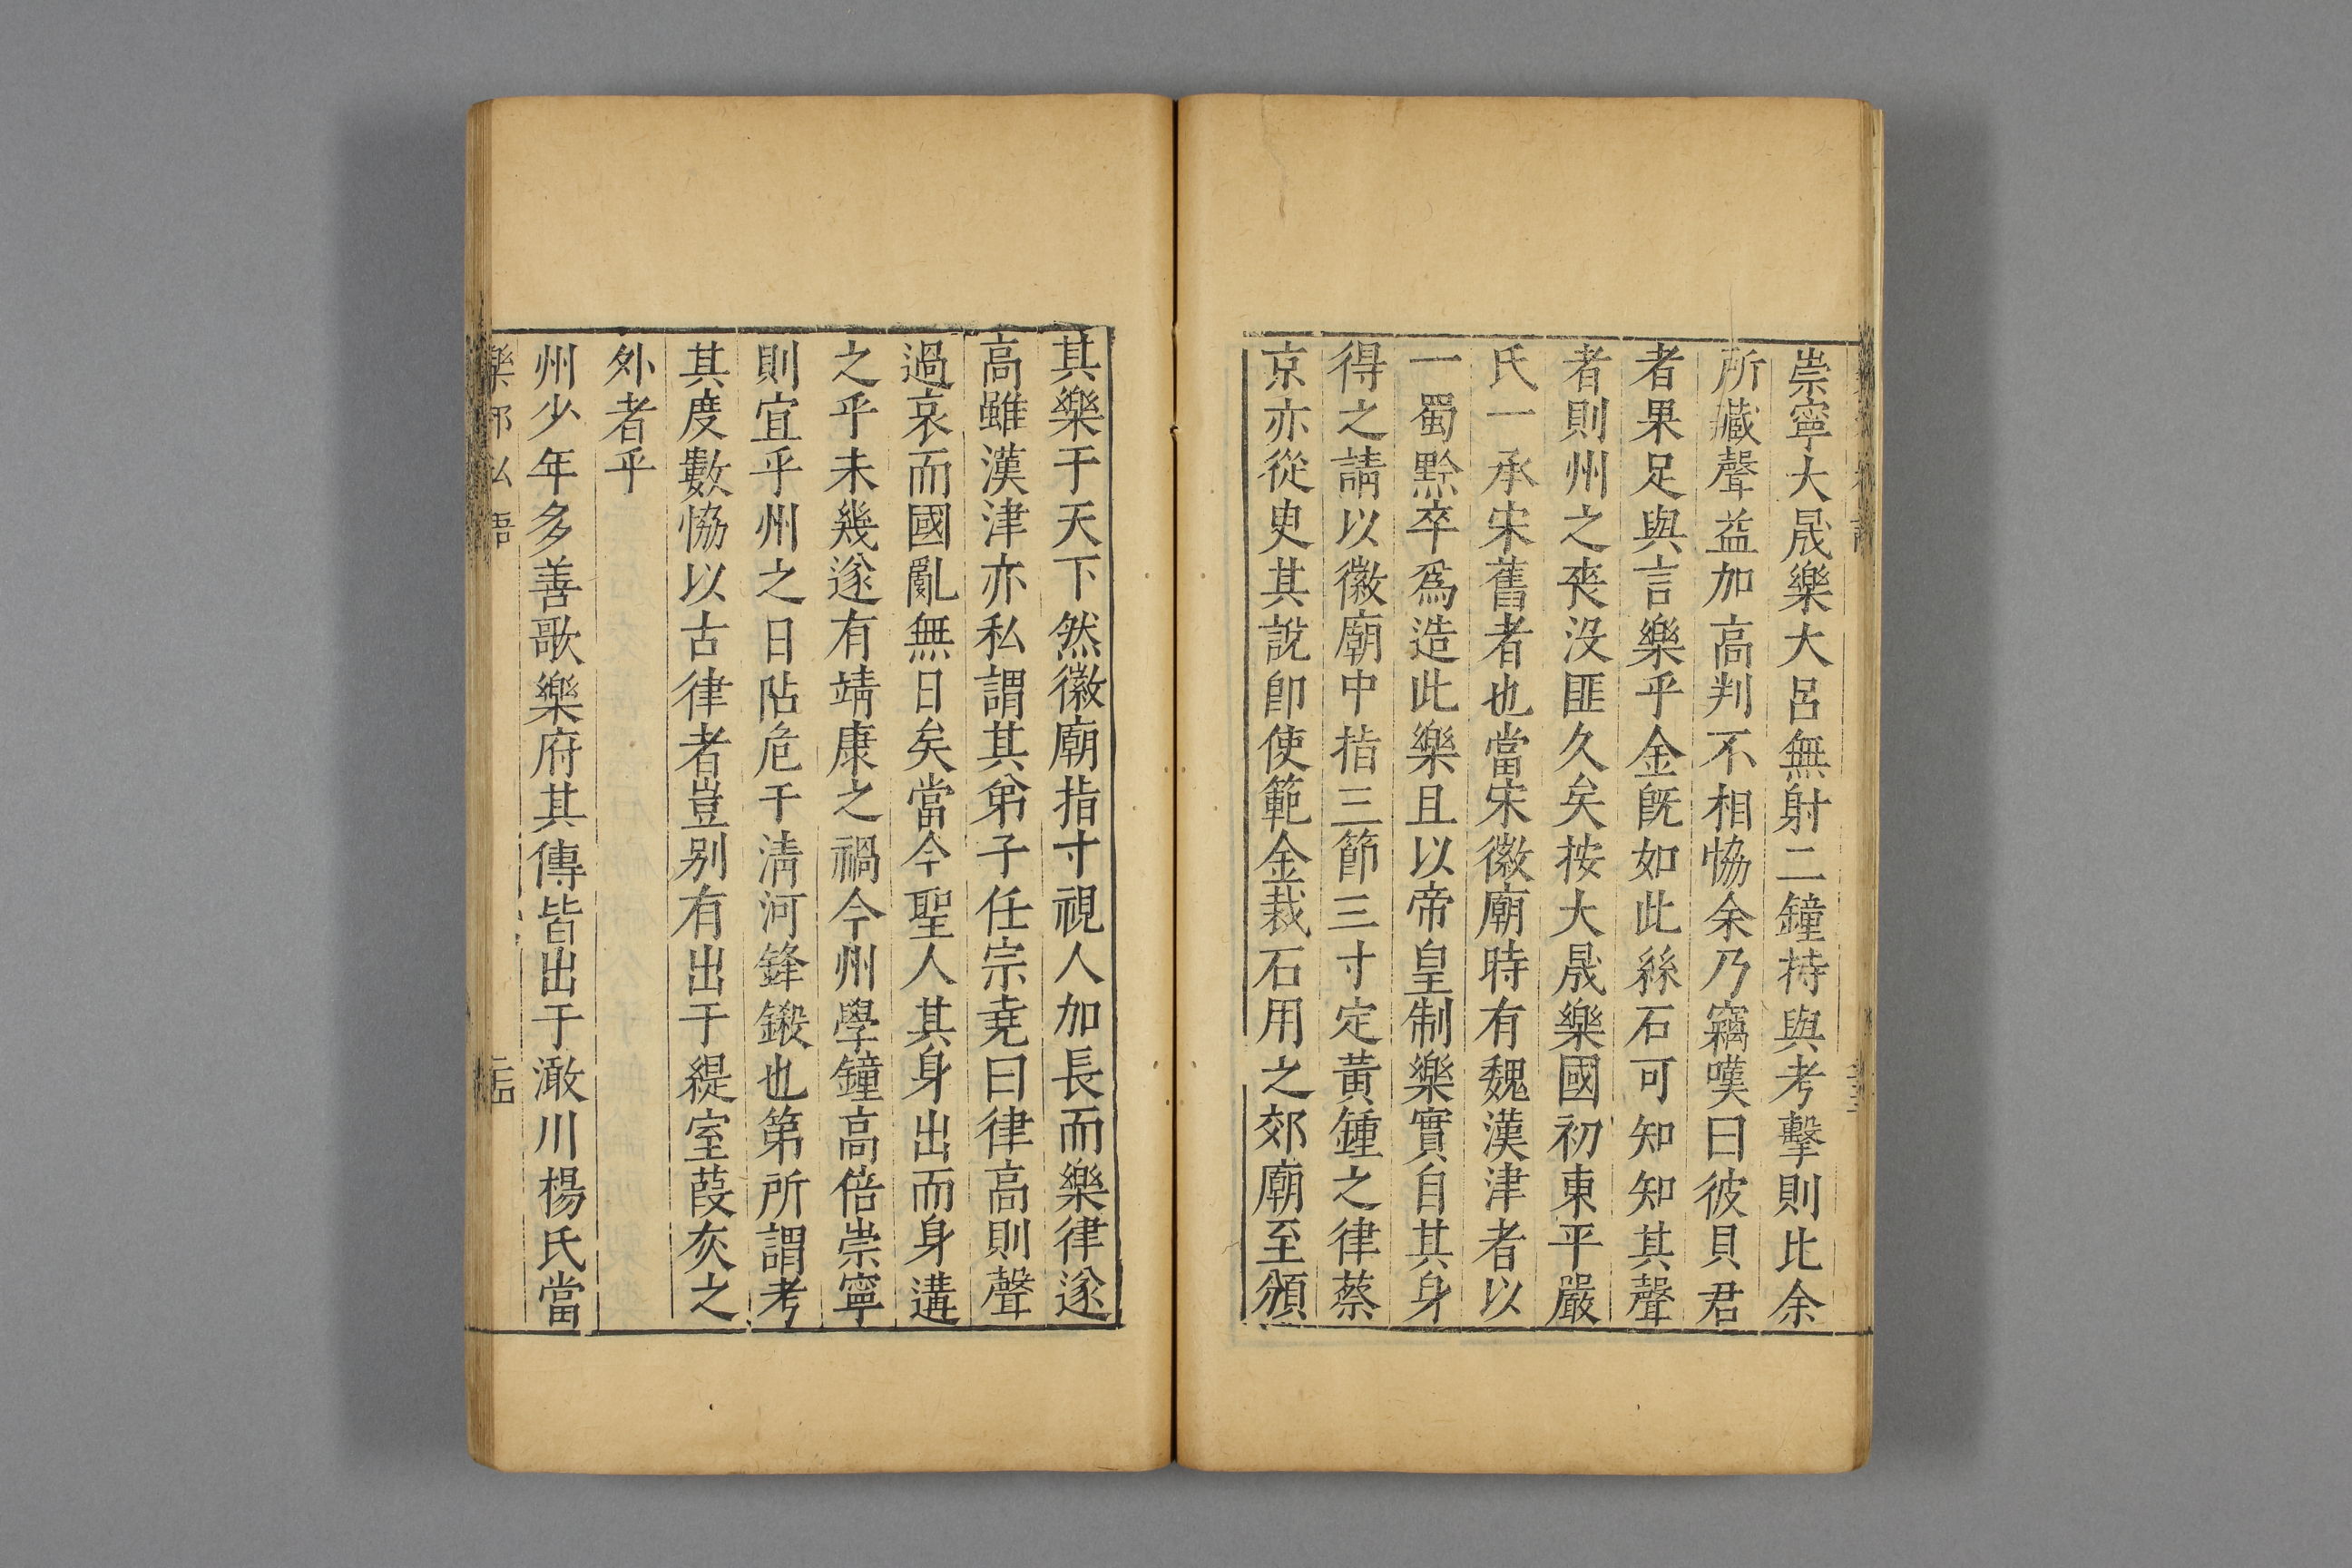 崇寧大晟樂大呂無射二鐘持與考擊則比余
所藏聲益加高判不相恊余乃竊嘆曰彼貝君
者果足與言樂乎金旣如此絲石可知知其聲
者則州之䘮没匪久矣按大晟樂國初東平嚴
氏一承宋舊者也當宋徽廟時有魏漢津者以
一蜀黥卒爲造此樂且以帝皇制樂實自其身
得之請以徽廟中指三節三寸定黃鍾之律蔡
京亦從臾其說卽使範金裁石用之郊廟至頒
其樂于天下然徽廟指寸視人加長而樂律遂
高雖漢津亦私謂其弟子任宗堯曰律高則聲
過哀而國亂無日矣當今聖人其身出而身遘
之乎未幾遂有靖康之禍今州學鐘高倍崇寧
則宜乎州之日阽危于淸河鋒鍛也第所謂考
其度數恊以古律者豈别有出于緹室葭灰之
外者乎
州少年多善歌樂府其傳皆出于澉川楊氏當
樂郊私語